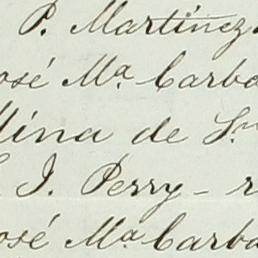 P. Martínez.
osé Mª Carba
lina de Sn
J. Perry - r
osé Mª Carba